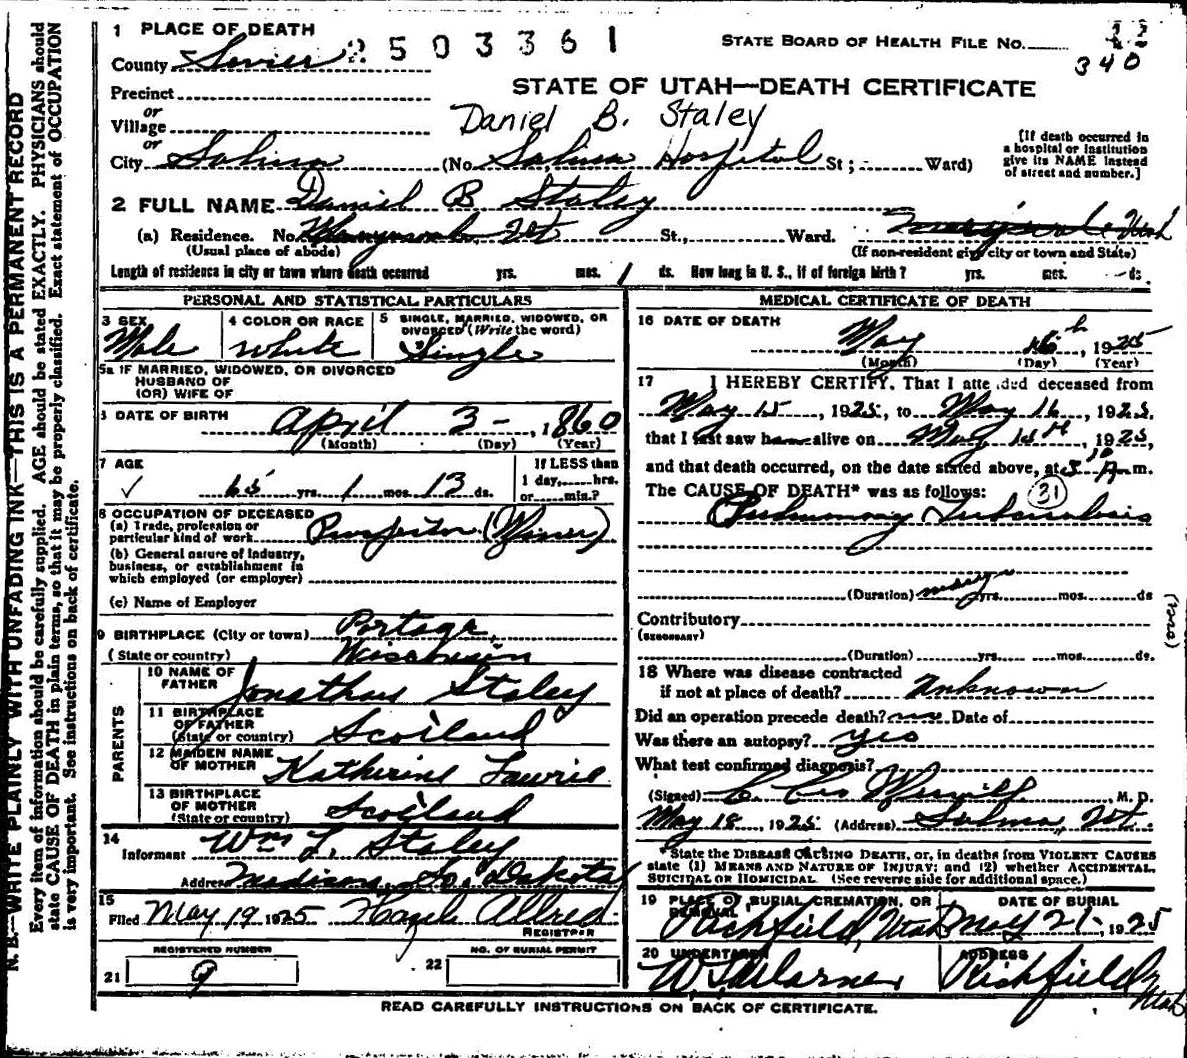 N. B.—WRITE PLAINLY WITH UNFADING INK—THIS IS A PERMANENT RECORD
Every item of information should be carefully supplied. AGE should be stated EXACTLY. PHYSICIANS should
state CAUSE OF DEATH in plain terms, so that it may be properly classified. Exact statement of OCCUPATION
is very important. See instructions on back of certificate.
1 PLACE OF DEATH
2503361
STATE BOARD OF HEALTH FILE No.
340
County Sevier
Precinct
STATE OF UTAH—DEATH CERTIFICATE
or
Village
Daniel B. Staley
or
City Salina (No. Salina Hospital St; Ward)
[If death occurred in
a hospital or institution
give its NAME instead
of street and number.]
2 FULL NAME Daniel B Staley
(a) Residence. No. Marysvale Ut St., Ward. Marysvale Utah
(Usual place of abode) (If non-resident give city or town and State)
Length of residence in city or town where death occurred yrs. mos. 1 ds. How long in U. S., if of foreign birth? yrs. mos. ds.
PERSONAL AND STATISTICAL PARTICULARS
3 SEX Male
4 COLOR OR RACE White
5 SINGLE, MARRIED, WIDOWED, OR
DIVORCED (Write the word)
Single
5a IF MARRIED, WIDOWED, OR DIVORCED
HUSBAND OF
(OR) WIFE OF
6 DATE OF BIRTH April 3-, 1860
(Month) (Day) (Year)
7 AGE
65 yrs. 1 mos. 13 ds.
If LESS than
1 day, hrs.
or min.?
8 OCCUPATION OF DECEASED
(a) Trade, profession or
particular kind of work Prospector (Miner)
(b) General nature of Industry,
business, or establishment in
which employed (or employer)
(c) Name of Employer
9 BIRTHPLACE (City or town) Portage,
(State or country) Wisconsin
PARENTS
10 NAME OF
FATHER Jonathus Staley
11 BIRTHPLACE
OF FATHER
(State or country) Scotland
12 MAIDEN NAME
OF MOTHER Katherine Lawrie
13 BIRTHPLACE
OF MOTHER
(State or country) Scotland
14
Informant Wm L. Staley
Address Madison, So. Dakota
15
Filed May 19 1925 Hazel Allred
REGISTRAR
REGISTERED NUMBER
21 9
NO. OF BURIAL PERMIT
22
MEDICAL CERTIFICATE OF DEATH
16 DATE OF DEATH
May 16th, 1925
(Month) (Day) (Year)
17 I HEREBY CERTIFY, That I attended deceased from
May 15, 1925, to May 16, 1925,
that I last saw h alive on May 15th, 1925,
and that death occurred, on the date stated above, at 3 10 A m.
The CAUSE OF DEATH* was as follows: 31
Pulmonary Tuberculosis
(Duration) many yrs. mos. ds
Contributory
(SECONDARY)
(Duration) yrs. mos. ds.
18 Where was disease contracted
if not at place of death? Unknown
Did an operation precede death? no Date of
Was there an autopsy? yes
What test confirmed diagnosis?
(Signed) M. D.
May 18, 1925 (Address) Salina, Ut.
*State the DISEASE CAUSING DEATH, or, in deaths from VIOLENT CAUSES
state (1) MEANS AND NATURE OF INJURY; and (2) whether ACCIDENTAL,
SUICIDAL OR HOMICIDAL. (See reverse side for additional space.)
19 PLACE OF BURIAL, CREMATION, OR
REMOVAL, DATE OF BURIAL
Richfield, Utah May 21-, 1925
20 UNDERTAKER ADDRESS
Richfield, Utah
READ CAREFULLY INSTRUCTIONS ON BACK OF CERTIFICATE.